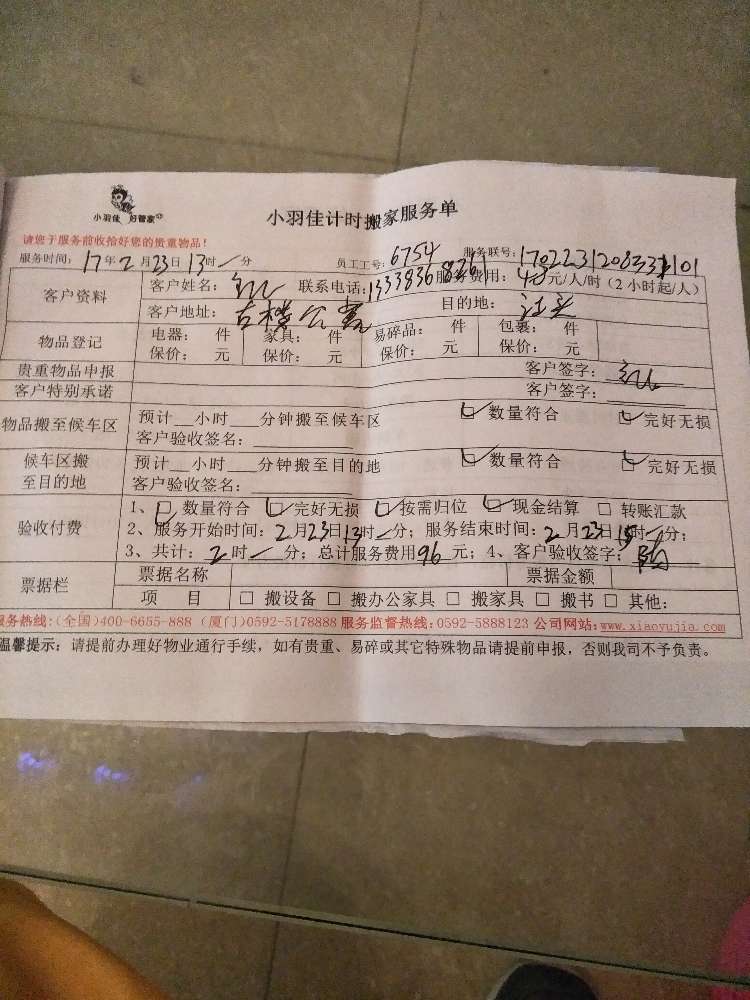 小羽佳 好管家
小羽佳计时搬家服务单
请您于服务前收拾好您的贵重物品！
服务时间：17年2月23日13时一分 员工工号：6754 服务联号：
客户资料 客户姓名： 联系电话： 服务费用： 元/人/时（2小时起/人）
客户地址： 目的地：
物品登记 电器： 件 家具： 件 易碎品： 件 包裹： 件
保价： 元 保价： 元 保价： 元 保价： 元
贵重物品申报 客户签字：
客户特别承诺 客户签字：
物品搬至候车区 预计__小时___分钟搬至候车区 数量符合 完好无损
客户验收签名：
候车区搬至目的地 预计__小时___分钟搬至目的地 数量符合 完好无损
客户验收签名：
验收付费 1、数量符合 完好无损 按需归位 现金结算 □ 转账汇款
2、服务开始时间：2月23日13时一分；服务结束时间：2月23日15时一分；
3、共计：2时一分；总计服务费用96元；4、客户验收签字：
票据栏 票据名称 票据金额
项 目 □ 搬设备 □ 搬办公家具 □ 搬家具 □ 搬书 □ 其他：
服务热线：(全国)400-6655-888 (厦门)0592-5178888 服务监督热线：0592-5888123 公司网站：www.xiaoyujia.com
温馨提示：请提前办理好物业通行手续，如有贵重、易碎或其它特殊物品请提前申报，否则我司不予负责。